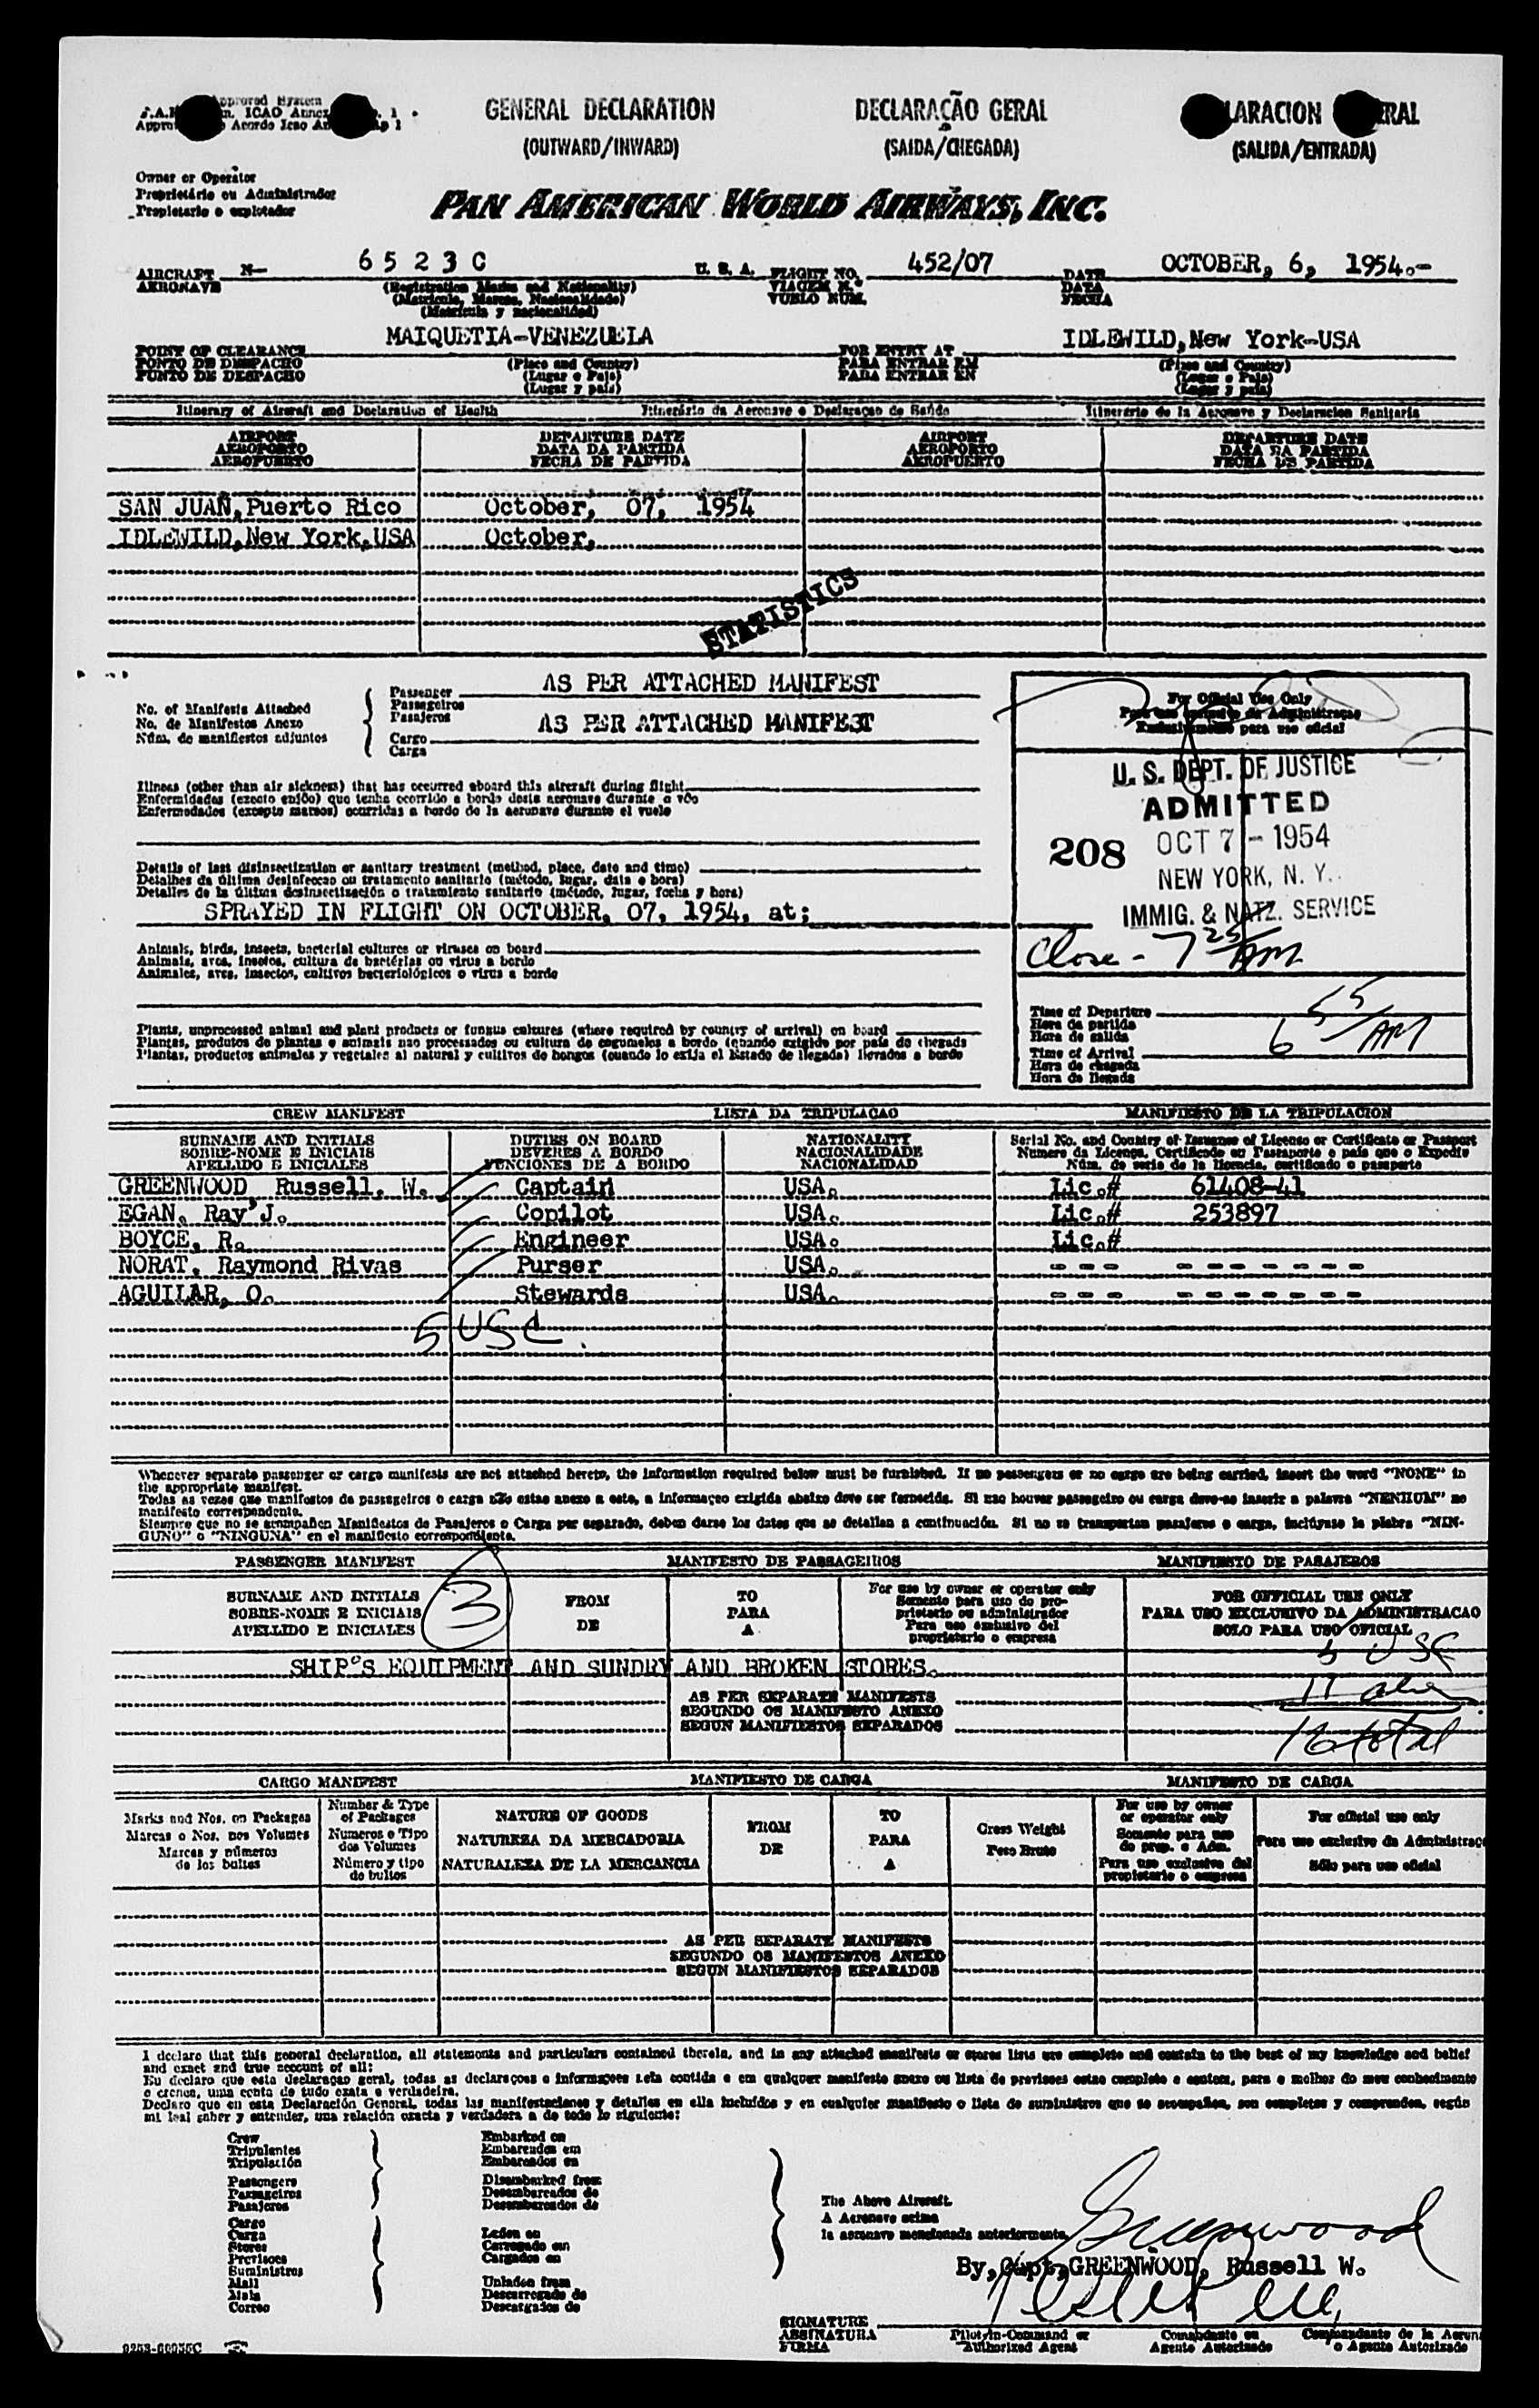 GENERAL DECLARATION
(OUTWARD/INWARD)
DECLARAÇÃO GERAL
(SAIDA/CHEGADA)
(SALIDA/ENTRADA)
Owner or Operator
Proprietário ou Administrador
Propietario o explotador
PAN AMERICAN WORLD AIRWAYS, INC.
AIRCRAFT N- 6 5 2 3 C U. S. A. FLIGHT NO. 452/07 DATE OCTOBER, 6, 1954.-
AERONAVE (Registration Marks and Nationality) VIAGEM N.º DATA
(Matricula, Marcas, Nacionalidade) VUELO NUM. FECHA
(Matricula y nacionalidad)
MAIQUETIA-VENEZUELA IDLEWILD, New York-USA
POINT OF CLEARANCE (Place and Country) FOR ENTRY AT (Place and Country)
PONTO DE DESPACHO (Lugar e Pais) PARA ENTRAR EM (Lugar e Pais)
PUNTO DE DESPACHO (Lugar y pais) PARA ENTRAR EN (Lugar y pais)
Itinerary of Aircraft and Declaration of Health Itinerário da Aeronave e Declaraçao de Saúde Itinerario de la Aeronave y Declaracion Sanitaria
AIRPORT DEPARTURE DATE AIRPORT DEPARTURE DATE
AEROPORTO DATA DA PARTIDA AEROPORTO DATA DA PARTIDA
AEROPUERTO FECHA DE PARTIDA AEROPUERTO FECHA DE PARTIDA
SAN JUAN, Puerto Rico October, 07, 1954
IDLEWILD, New York, USA October,
STATISTICS
No. of Manifests Attached
No. de Manifestos Anexo
Núm. de manifiestos adjuntos
Passenger AS PER ATTACHED MANIFEST
Passageiros
Pasajeros
Cargo AS PER ATTACHED MANIFEST
Carga
For Official Use Only
U. S. DEPT. OF JUSTICE
ADMITTED
208 OCT 7 - 1954
NEW YORK, N. Y.
IMMIG. & NATZ. SERVICE
Close - 7 25 AM
Illness (other than air sickness) that has occurred aboard this aircraft during flight
Enfermidades (exceto enjôo) que tenha ocorrido a bordo desta aeronave durante o vôo
Enfermedades (excepto mareos) ocurridas a bordo de la aeronave durante el vuelo
Details of last disinsectization or sanitary treatment (method, place, date and time)
Detalhes da última desinfeccao ou tratamento sanitario (método, lugar, data e hora)
Detalles de la última desinsectización o tratamiento sanitario (método, lugar, fecha y hora)
SPRAYED IN FLIGHT ON OCTOBER, 07, 1954, at;
Animals, birds, insects, bacterial cultures or viruses on board
Animais, aves, insetos, cultura de bactérias ou virus a bordo
Animales, aves, insectos, cultivos bacteriológicos o virus a bordo
Plants, unprocessed animal and plant products or fungus cultures (where required by country of arrival) on board
Plantas, produtos de plantas e animais nao processados ou cultura de cogumelos a bordo (quando exigido por pais de chegada
Plantas, productos animales y vegetales al natural y cultivos de hongos (cuando lo exija el Estado de llegada) llevados a bordo
Time of Departure
Hora da partida
Hora de salida
Time of Arrival 6 55 AM
Hora da chegada
Hora de llegada
CREW MANIFEST LISTA DA TRIPULACAO MANIFIESTO DE LA TRIPULACION
SURNAME AND INITIALS DUTIES ON BOARD NATIONALITY Serial No. and Country of Issuance of License or Certificate or Passport
SOBRE-NOME E INICIAIS DEVERES A BORDO NACIONALIDADE Numero da Licença, Certificado ou Passaporte e pais que o Expediu
APELLIDO E INICIALES FUNCIONES DE A BORDO NACIONALIDAD Núm. de serie de la licencia, certificado o pasaporte
GREENWOOD, Russell. W. Captain USA. Lic.# 61408-41
EGAN, Ray J. Copilot USA. Lic.# 253897
BOYCE, R. Engineer USA. Lic.#
NORAT, Raymond Rivas Purser USA. - - - - - - - - - -
AGUILAR, O. Stewards USA. - - - - - - - - - -
5 USC.
Whenever separate passenger or cargo manifests are not attached hereto, the information required below must be furnished. If no passengers or no cargo are being carried, insert the word "NONE" in
the appropriate manifest.
Todas as vezes que manifestos de passageiros o carga não estao anexo a este, a informaçao exigida abaixo deve ser fornecida. Si nao houver passageiro ou carga deve-se inserir a palavra "NENHUM" no
manifesto correspondente.
Siempre que no se acompañen Manifiestos de Pasajeros o Carga por separado, deben darse los datos que se detallan a continuación. Si no se transportan pasajeros o carga, inclúyase la plabra "NIN-
GUNO" o "NINGUNA" en el manifiesto correspondiente.
PASSENGER MANIFEST MANIFESTO DE PASSAGEIROS MANIFIESTO DE PASAJEROS
3
SURNAME AND INITIALS FROM TO For use by owner or operator only FOR OFFICIAL USE ONLY
SOBRE-NOME E INICIAIS DE PARA Somente para uso do proprietario ou administrador PARA USO EXCLUSIVO DA ADMINISTRACAO
APELLIDO E INICIALES A Para uso exclusivo del propietario o empresa SOLO PARA USO OFICIAL
SHIP'S EQUIPMENT AND SUNDRY AND BROKEN STORES.
5 USC
11 alien
16 total
AS PER SEPARATE MANIFESTS
SEGUNDO OS MANIFESTO ANEXO
SEGUN MANIFIESTOS SEPARADOS
CARGO MANIFEST MANIFIESTO DE CARGA MANIFIESTO DE CARGA
Marks and Nos. on Packages Number & Type of Packages NATURE OF GOODS FROM TO Gross Weight For use by owner or operator only For official use only
Marcas o Nos. nos Volumes Numeros e Tipo dos Volumes NATUREZA DA MERCADORIA DE PARA Peso Bruto Somente para uso do prop. e Adm. Para uso exclusivo da Administraç
Marcas y números de los bultos Número y tipo de bultos NATURALEZA DE LA MERCANCIA A Para uso exclusivo del propietario o empresa Sólo para uso oficial
AS PER SEPARATE MANIFESTS
SEGUNDO OS MANIFESTOS ANEXO
SEGUN MANIFIESTOS SEPARADOS
I declare that this general declaration, all statements and particulars contained therein, and in any attached manifests or stores lists are complete and contain to the best of my knowledge and belief
and exact and true account of all:
Eu declaro que esta declaraçao geral, todas as declaraçoes e informaçoes nela contida e em qualquer manifesto anexo ou lista de previsoes estao completo e contem, para o melhor do meu conhecimento
e crença, uma conta de tudo exata e verdadeira.
Declaro que en esta Declaración General, todas las manifestaciones y detalles en ella incluídos y en cualquier manifiesto o lista de suministros que se acompañen, son completos y comprenden, según
mi leal saber y entender, una relación exacta y verdadera a de todo lo siguiente:
Crew Embarked on
Tripulantes Embarcados em
Tripulación Embarcados en
Passengers Disembarked from
Passageiros Desembarcados de
Pasajeros Desembarcados de
Cargo
Carga Laden on
Stores Carregado em
Previsoes Cargados en
Suministros
Mail Unladen from
Mala Descarregado de
Correo Descargados de
The Above Aircraft.
A Aeronave acima
la aeronave mencionada anteriormente
Greenwood
By, Capt, GREENWOOD, Russell W.
SIGNATURE Pilot-in-Command or Comandante ou Commandante de la Aeron
ASSINATURA Authorized Agent Agente Autorizado o Agente Autorizado
FIRMA